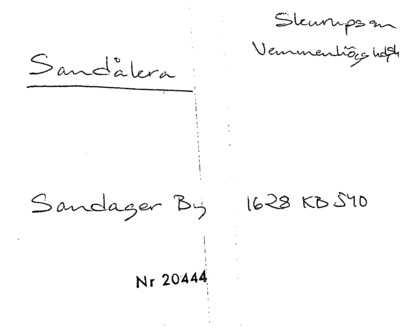 Skurups sn
Vemmenhögs hd
Sandåkra
Sandager By 1628 KB 540
Nr 20444